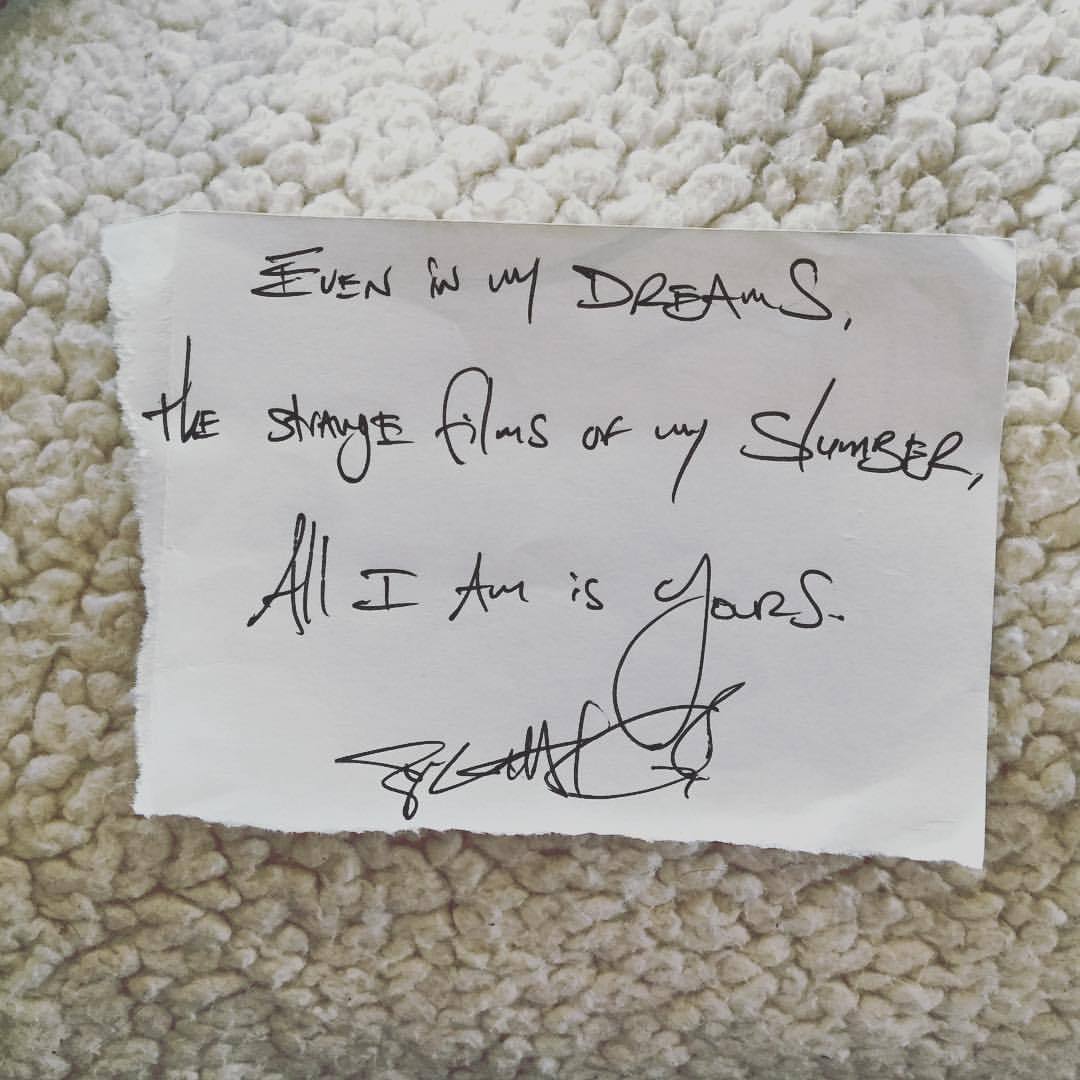 EVEN in my DREAMS,
tHE stRANgE films of my SlumBER,
All I Am is YouRS.